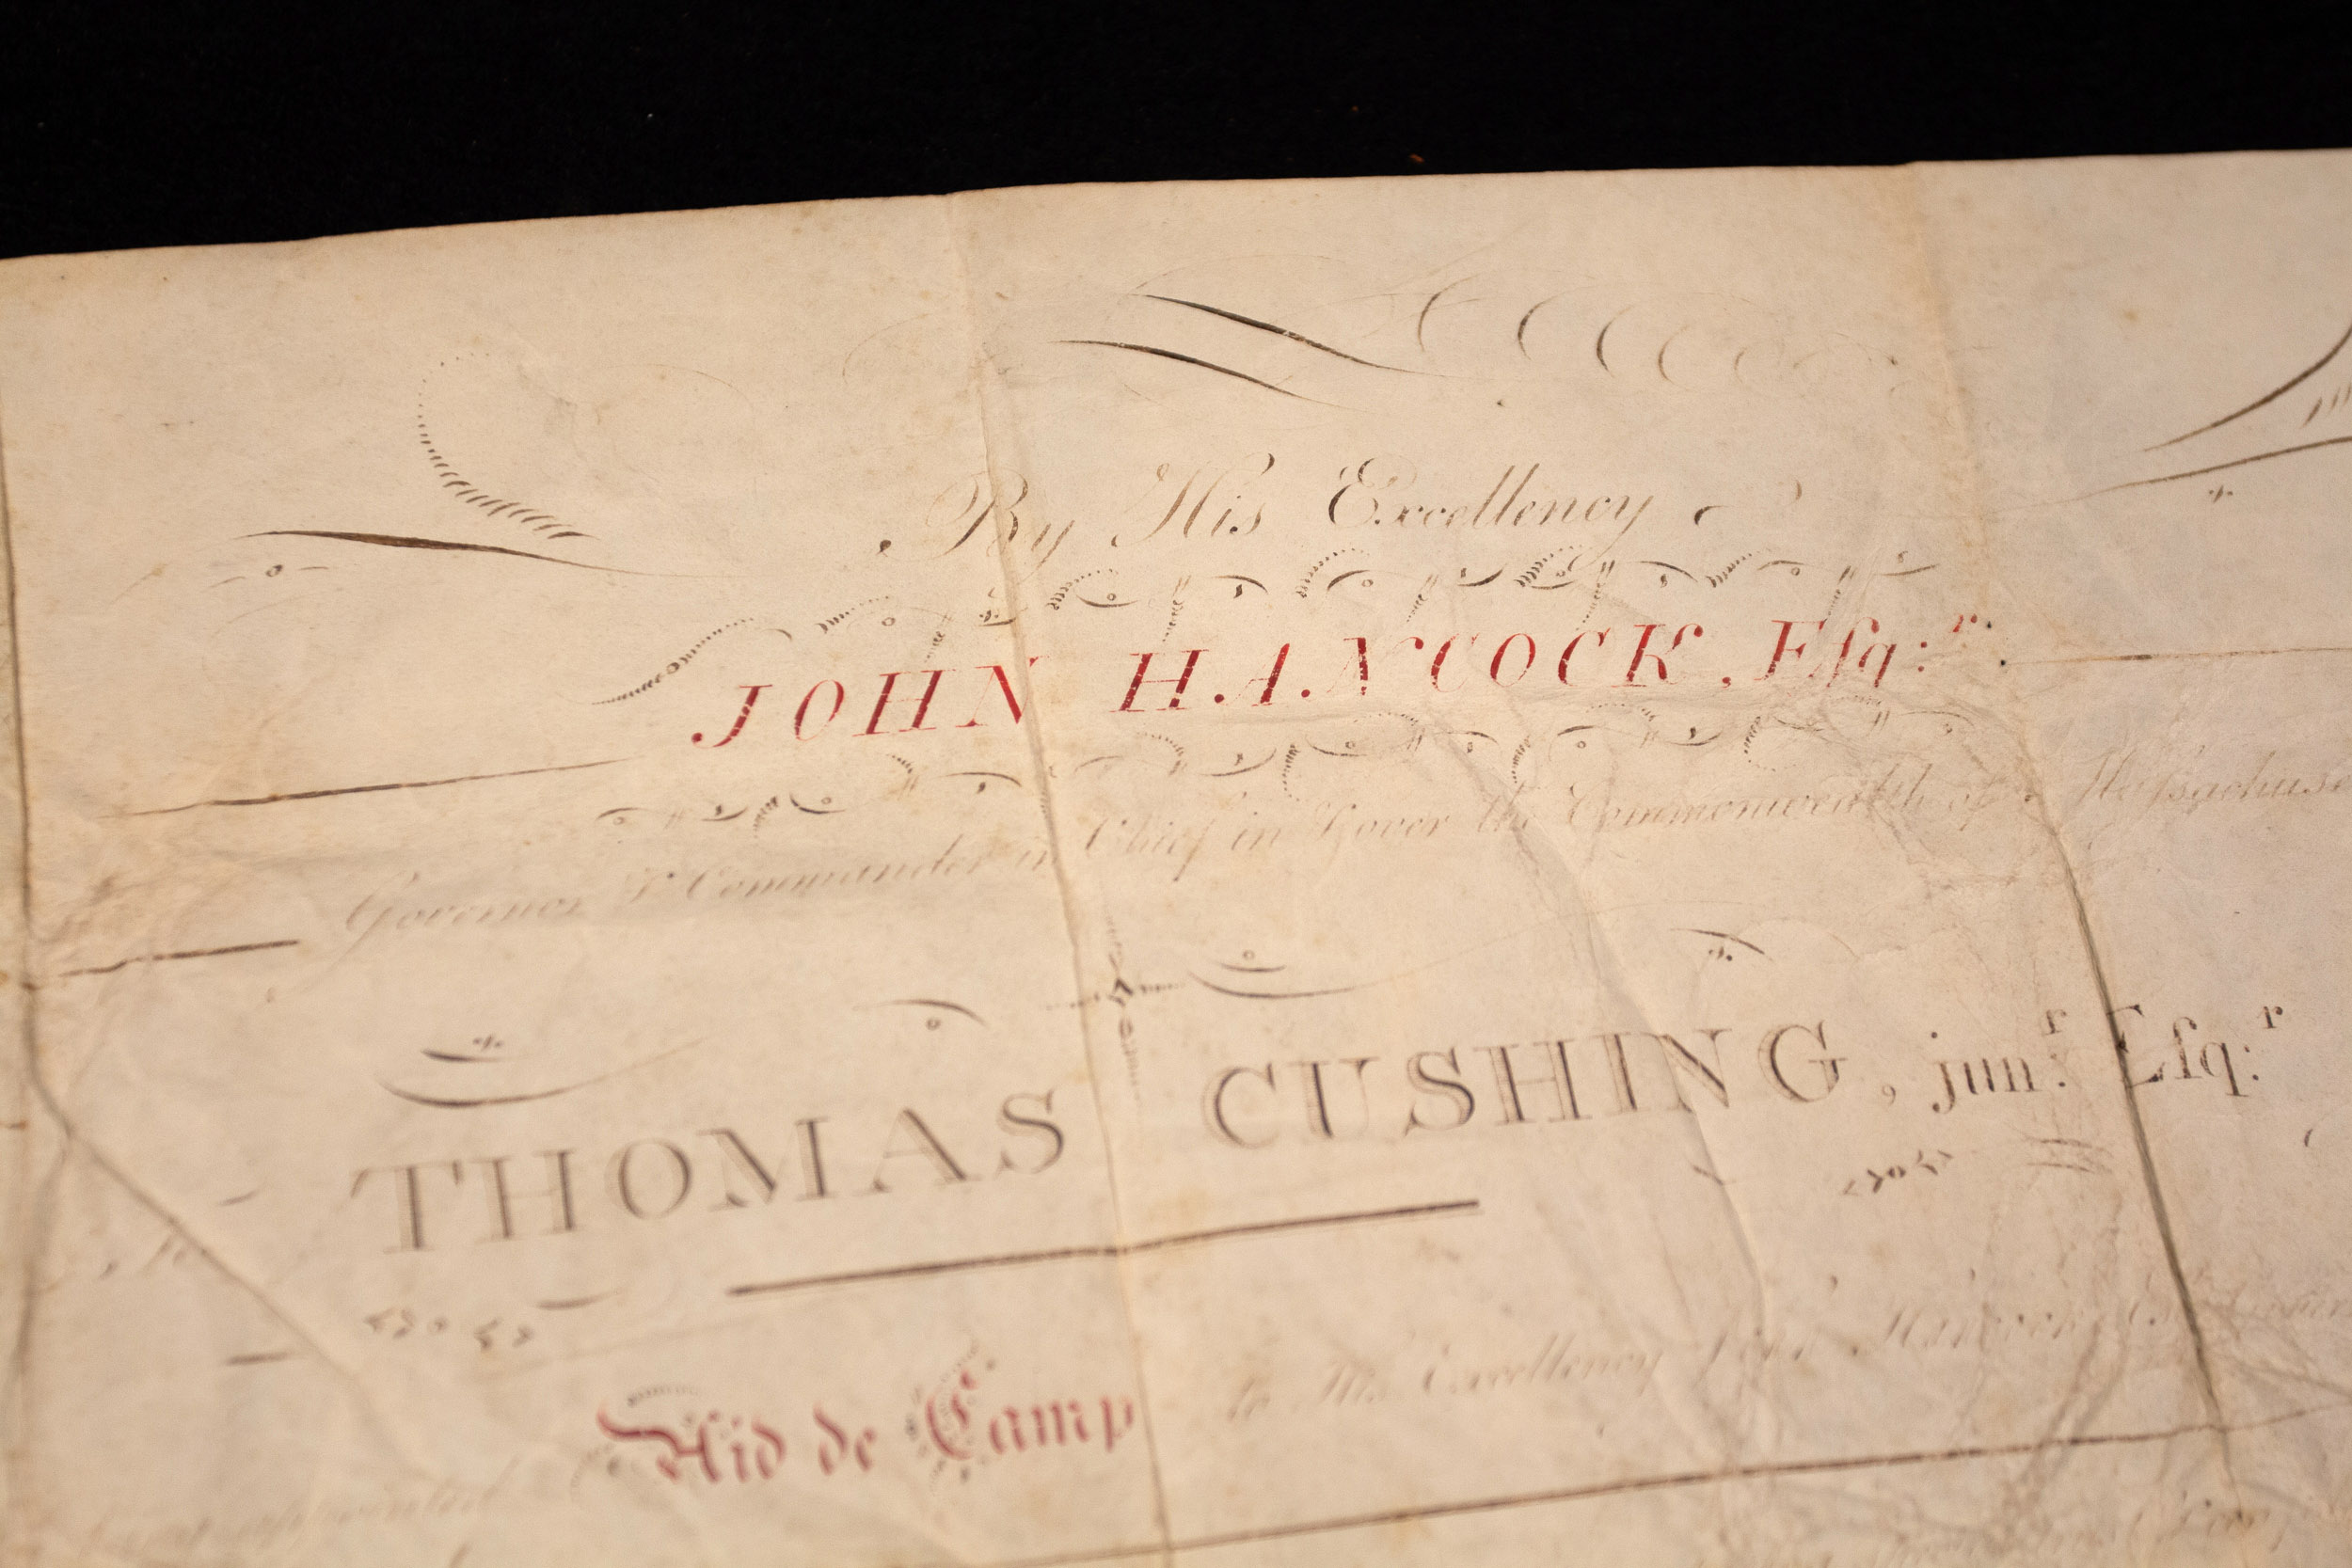 By His Excellency
JOHN H.A.NCOCK, Eſqʳ:
Governor & Commander in Chief in & over the Commonwealth of Maſsachuse
THOMAS CUSHING, junʳ: Eſqʳ:
to
appointed Aid de Camp to His Excellency John Hancock Esqʳ